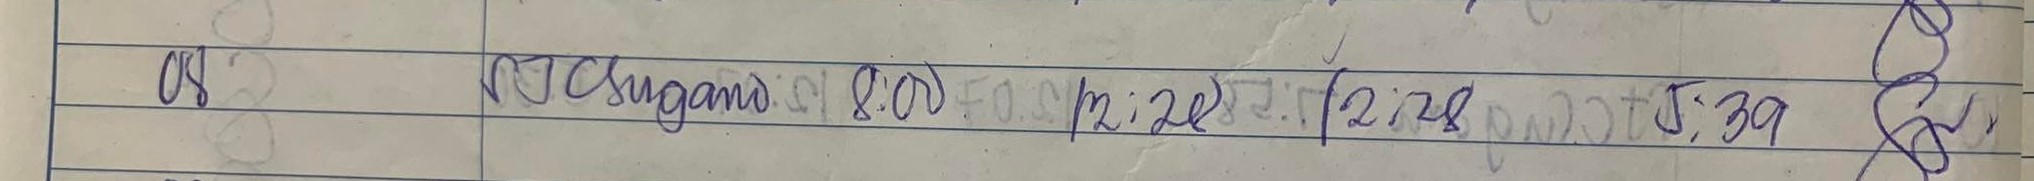 08 NJ Csugano 8:00 12:28 12:28 5:39